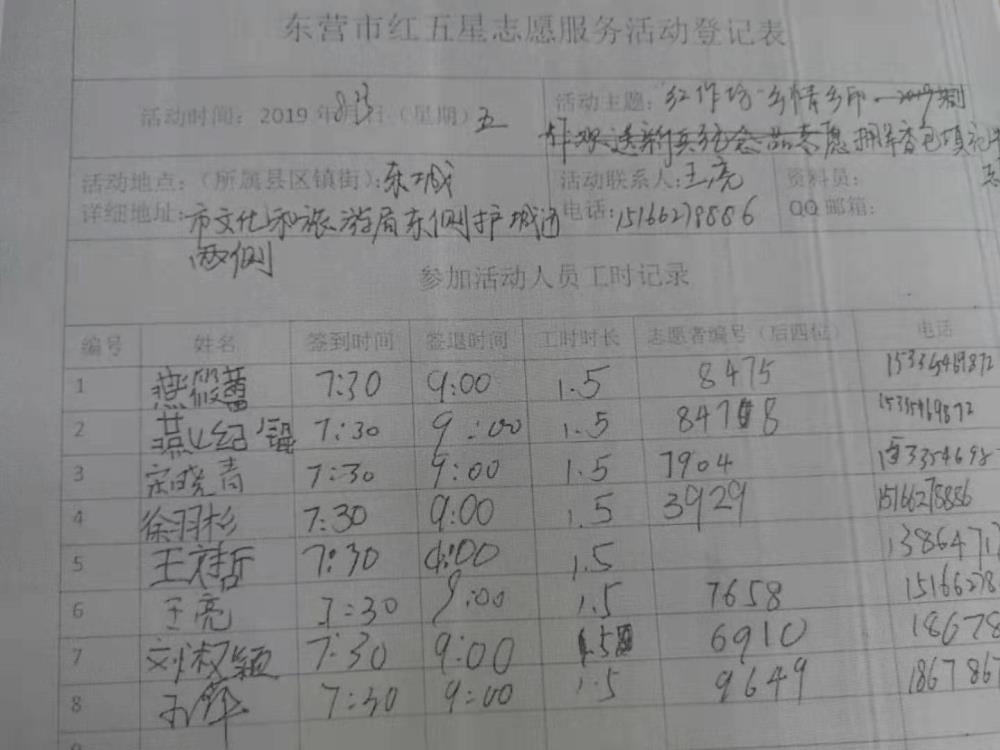 东营市红五星志愿服务活动登记表
活动时间：2019年8月 日（星期）五
活动主题：红作坊·乡情乡邮
志愿拥军香包填充
活动地点：（所属县区镇街）：东城
活动联系人：王亮
资料员：
详细地址：市文化和旅游局东侧护城河
两侧
电话：15166278886
QQ邮箱：
参加活动人员工时记录
编号 姓名 签到时间 签退时间 工时时长 志愿者编号（后四位） 电话
1 燕筱蕾 7:30 9:00 1.5 8475 15335469872
2 7:30 9:00 1.5 84718 15335469872
3 宋晓青 7:30 9:00 1.5 7904 153354698
4 徐羽杉 7:30 9:00 1.5 3929 15166278886
5 7:30 9:00 1.5 1386471
6 王亮 7:30 9:00 1.5 7658 15166278
7 刘权颖 7:30 9:00 1.5 6910 18678
8 7:30 9:00 1.5 9649 1867867